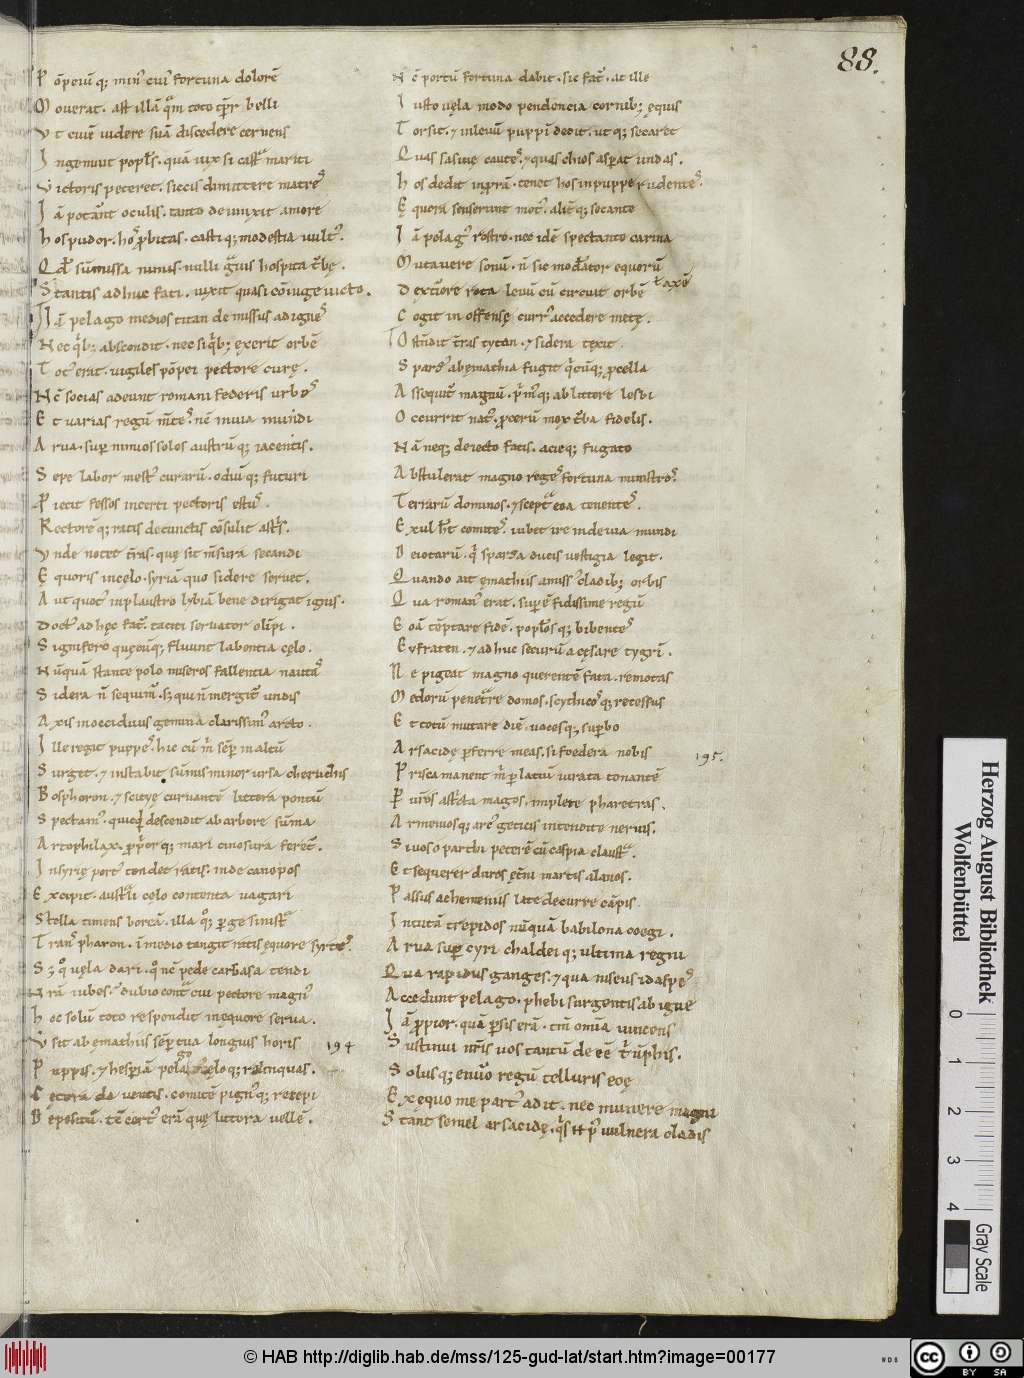 88.
P ōpeiū q; min' cui' fortuna dolorē
M overat. ast illā q̄m toto t̄pr belli
V t civē videre suā discedere cernens
I ngemuit popl's. quā vix si castra mariti
V ictoris peteret. siccis dimittere matres
I ā poterant oculis. tanto devinxit amore
H os pudor. hos probitas. casti q; modestia vult'.
Q d' sūmissa nimis. nulli gravis hospita t'bę.
S tantis adhuc fati. vixit quasi cōiuge victo.
I ā pelago medios titan demissus ad ignes
N ec q'b; abscondit. nec si q'b; exerit orbē
T ot' erat. vigiles pōpei pectore curę.
N c̄ socias adeunt romani federis urbes
E t varias regū mentes. nc̄ invia mundi
A rva. sup nimios soles austrū q; iacentis.
S epe labor mest' curarū. odiū q; futuri
P roiecit fessos incerti pectoris estus.
R ectorēq; ratis de cunctis cōsulit astris.
V nde notet tr̄as. quę sit mensura secandi
Ę quoris in celo. syriā quo sidere servet.
A ut quot' in plaustro lybiā bene dirigat ignis.
D oct' ad hęc fat' taciti servator olimpi.
S ignifero quęcūq; fluunt labentia cęlo.
N ūquā stante polo miseros fallentia nautas
S idera n̄ sequim'. s; qui n̄ mergit' undis
A xis inocciduus geminā clarissim' arcto.
I lle regit puppes. hic cū m' semp in altū
S urget. & instabit sūmis minor ursa cheruchis
B osphoron. & scitye curvantē littora pontū
S pectam'. quicq'd descendit ab arbore sūma
A rtophilax. p̄piorq; mari cinosura feret'.
I n syrię port' tendet ratis. inde canopos
E xcipit. australi celo contenta vagari
S tella timens boreā. illa q; perge sinistra
T rans pharon. in medio tanget ratis ęquore syrtes.
S ; quo vęla dari. quo nc̄ pede carbasa tendi
N r̄a iubes. dubio contra cui pectore magn'
H oc solū toto respondit in ęquore serva.
V t sit ab ęmathiis semp tua longius horis
194
P uppis. & hesperiā pelago cęloq; relinquas.
C ętera da ventis. comitē pign'q; recepi
D epositū. tc̄ cert' erā quę littora vellē.
N c̄ portū fortuna dabit. sic fat'. at ille
I usto vęla modo pendentia cornib; ęquis
T orsit. & in levū puppī dedit. utq; secaret
Q uas sasinę cautes. & quas chios asperat undas.
H os dedit in prorā. tenet hos in puppe rudentes.
Ę quora senserunt mot'. aliterq; secante
I ā pelag' rostro. nec idē spectante carina
M utavere sonū. n̄ sic moderator equorū
D extĕriore rota levū cū circuit orbē
t axē
C ogit in offensę curr' accedere metę.
O stendit tr̄as tytan. & sidera texit.
S pars' ab ęmathia fugit q'cūq; procella
A ssequit' magnū. prim'q; ab littore lesbi
O ccurrit nat'. procerū mox t'ba fidelis.
N ā neq; deiecto fatis. acieq; fugato
A bstulerat magno reges fortuna ministros.
T errarū dominos. & sceptra eoa tenentes.
E xul hab& comites. iubet ire in devia mundi
D eiotarū. q' sparsa ducis vestigia legit.
Q uando ait ęmathiis amiss' cladib; orbis
Q ua roman' erat. superē fidissime regū
E oā tēptare fidē. populosq; bibentes
E ufraten. & adhuc securū a cęsare tygrī.
N e pigeat magno querentē fata. remotas
M edorū penetrare domos. scythicosq; recessus
E t totū mutare diē. vocesq; superbo
A rsacidę perferre meas. si foedera nobis
195.
P risca manent m' per latiū iurata tonantē
P er v'ros astricta magos. implete pharetras.
A rmeniosq; arc' geticis intendite nervis.
S i vos o parthi peterē cū caspia claustra.
E t sequerer duros ęt'ni martis alanos.
P assus achemeniis late decurre cāpis.
I n tutā trepidos nūquā babilona coegi.
A rva sup cyri chaldeiq; ultima regni
Q ua rapidus ganges. & qua niseus idaspes
A ccedunt pelago. phebi surgentis ab igne
I ā propior. quā persis erā. tm̄ omīa vincens
S ustinui nr̄is vos tantū deēē triūphis.
S olusq; e nu'o regū telluris eoę
E x ęquo me part' adit. nec munere magni
S tant semel arsacidę. q's n̄ p' vulnera cladis
Herzog August Bibliothek
Wolfenbüttel
0 1 2 3 4
Gray Scale
© HAB http://diglib.hab.de/mss/125-gud-lat/start.htm?image=00177
cc BY SA